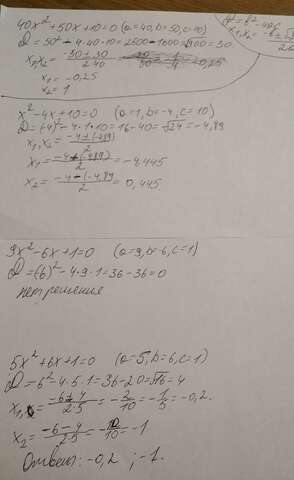 D = b² - 4ac
x1,x2 = -b ±
40x² + 50x + 10 = 0 (a=40, b=50, c=10)
D = 50² - 4·40·10 = 2500 - 1600 = 900 = 30
x1,x2 = 50 ± 30 / 2·40 = -0,25
x1 = -0,25
x2 = 1
x² - 4x + 10 = 0 (a=1, b=-4, c=10)
D = (-4)² - 4·1·10 = 16 - 40 = √24 = -4,89
x1,x2 = -4 ± (-4,89) / 2
x1 = -4 + (-4,89) / 2 = -4,445
x2 = -4 - (-4,89 / 2 = 0,445
9x² - 6x + 1 = 0 (a=9, b=6, c=1)
D = (6)² - 4·9·1 = 36 - 36 = 0
нет решения
5x² + 6x + 1 = 0 (a=5, b=6, c=1)
D = 6² - 4·5·1 = 36 - 20 = √16 = 4
x1 = -6 + 4 / 2·5 = -2/10 = -1/5 = -0,2.
x2 = -6 - 4 / 2·5 = -10/10 = -1
Ответ: -0,2 ; -1.